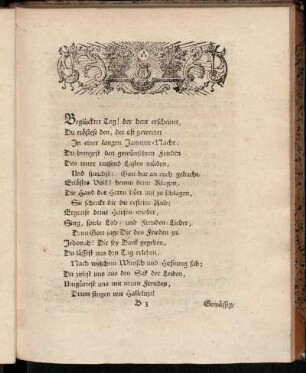 Beglückter Tag! der heut erscheinet,
Du tröstest den, der oft geweinet
In einer langen Jammer-Nacht:
Du bringest den gewünschten Frieden
Den unter tausend Lasten müden,
Und sprichst: Gott hat an euch gedacht.
Erlößtes Volk! hemm dein Klagen,
Die Hand des Herrn hört auf zu schlagen,
Sie schenkt dir die
Ergreife deine Harfen wieder,
Sing, spiele Lob- und Freuden-Lieder,
Dann Gott sagt Dir den Frieden zu.
Jehovah! Dir sey Dank gegeben,
Du lässest uns den Tag erleben,
Nach welchem Wunsch und Hofnung sah;
Du ziehst uns aus den Sak der Leiden,
Umgürtest uns mit neuen Freuden,
Drum singen wir Halleluja!
B 3